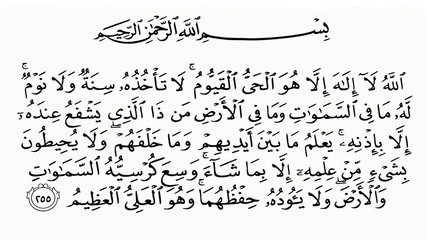 بِسْمِ اللَّهِ الرَّحْمَٰنِ الرَّحِيمِ
اللَّهُ لَا إِلَٰهَ إِلَّا هُوَ الْحَيُّ الْقَيُّومُ ۚ لَا تَأْخُذُهُ سِنَةٌ وَلَا نَوْمٌ ۚ
لَهُ مَا فِي السَّمَاوَاتِ وَمَا فِي الْأَرْضِ مَن ذَا الَّذِي يَشْفَعُ عِندَهُ
إِلَّا بِإِذْنِهِ ۚ يَعْلَمُ مَا بَيْنَ أَيْدِيهِمْ وَمَا خَلْفَهُمْ ۖ وَلَا يُحِيطُونَ
بِشَيْءٍ مِّنْ عِلْمِهِ إِلَّا بِمَا شَاءَ ۚ وَسِعَ كُرْسِيُّهُ السَّمَاوَاتِ
وَالْأَرْضَ ۖ وَلَا يَئُودُهُ حِفْظُهُمَا ۚ وَهُوَ الْعَلِيُّ الْعَظِيمُ ٢٥٥